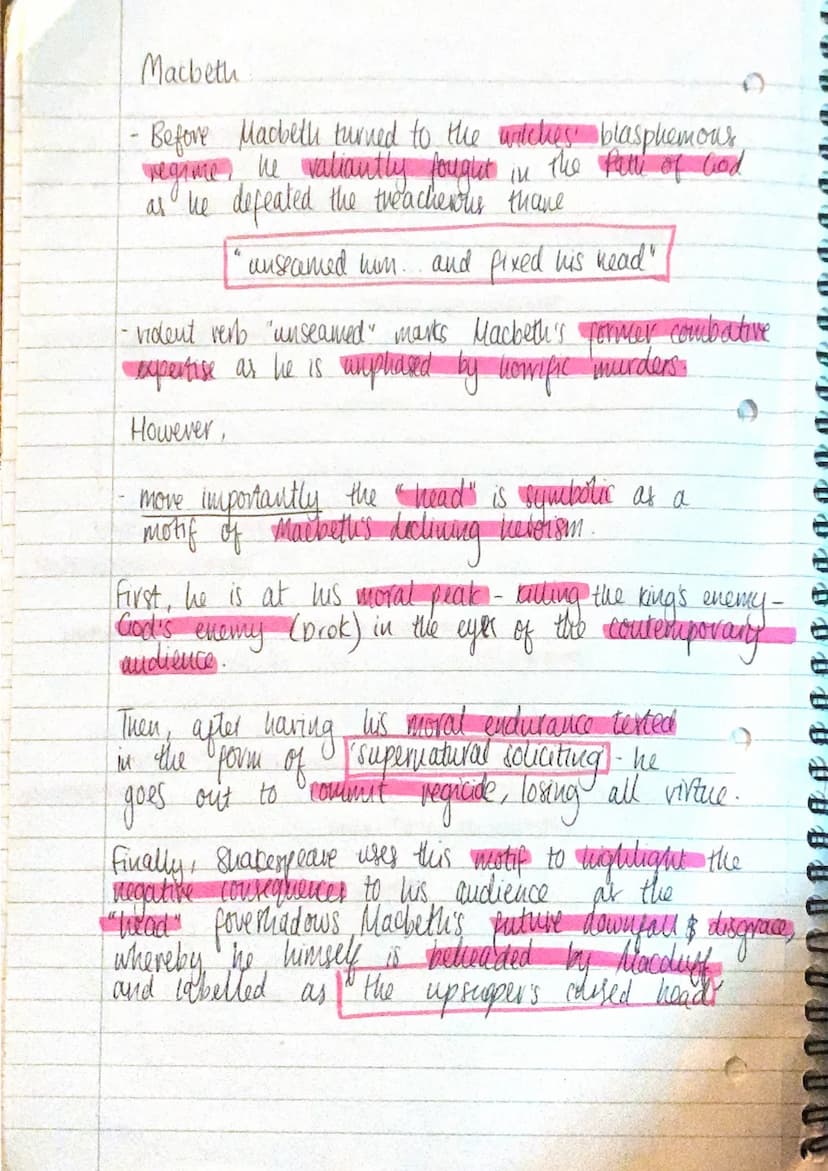 Macbeth
- Before Macbeth turned to the witches' blasphemous
regime, he valiantly fought in the Path of God
as he defeated the treacherous thane
"unseamed him... and fixed his head"
- violent verb "unseamed" marks Macbeth's former combative
expertise as he is unphased by horrific murders.
However,
- more importantly the "head" is symbolic as a
motif of Macbeth's declining heroism.
First, he is at his moral peak - killing the king's enemy -
God's enemy (DROK) in the eyes of the contemporary
audience.
Then, after having his moral endurance tested
in the form of 'supernatural soliciting' - he
goes out to commit regicide, losing all virtue.
Finally, Shakespeare uses this motif to highlight the
negative consequences to his audience as the
"head" foreshadows Macbeth's future downfall & disgrace,
whereby he himself is beheaded by Macduff
and labelled as "the upsurper's cursed head"